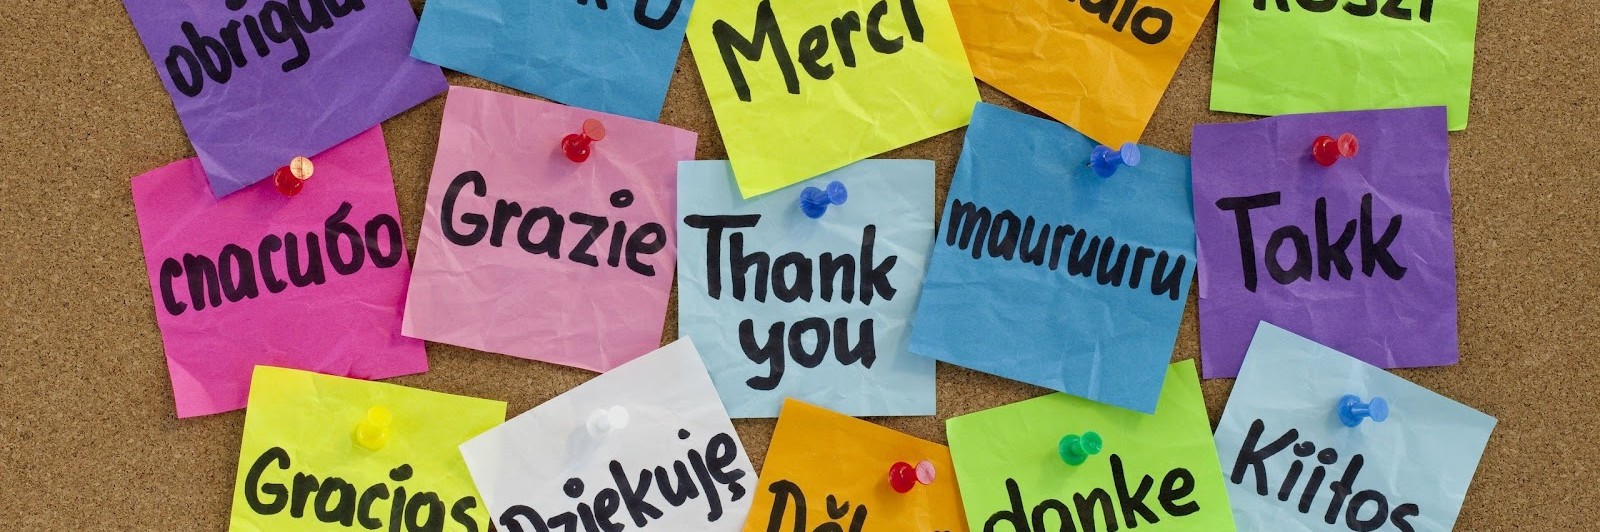 obrigado
Merci
спасибо
Grazie
Thank
you
mauruuru
Takk
Gracias
Dziękuję
danke
Kiitos